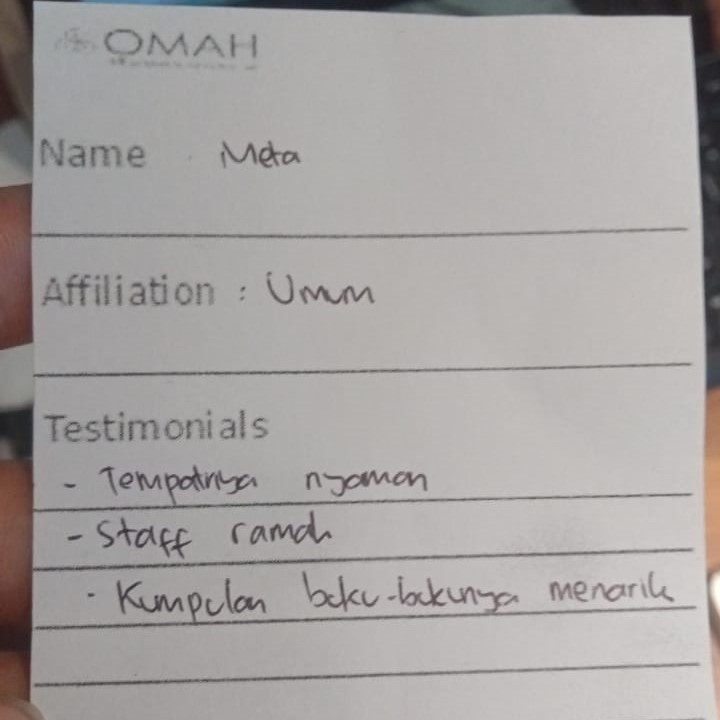 OMAH
Name Meta
Affiliation : Umum
Testimonials
- Tempatnya nyaman
- Staff ramah
- Kumpulan buku-bukunya menarik